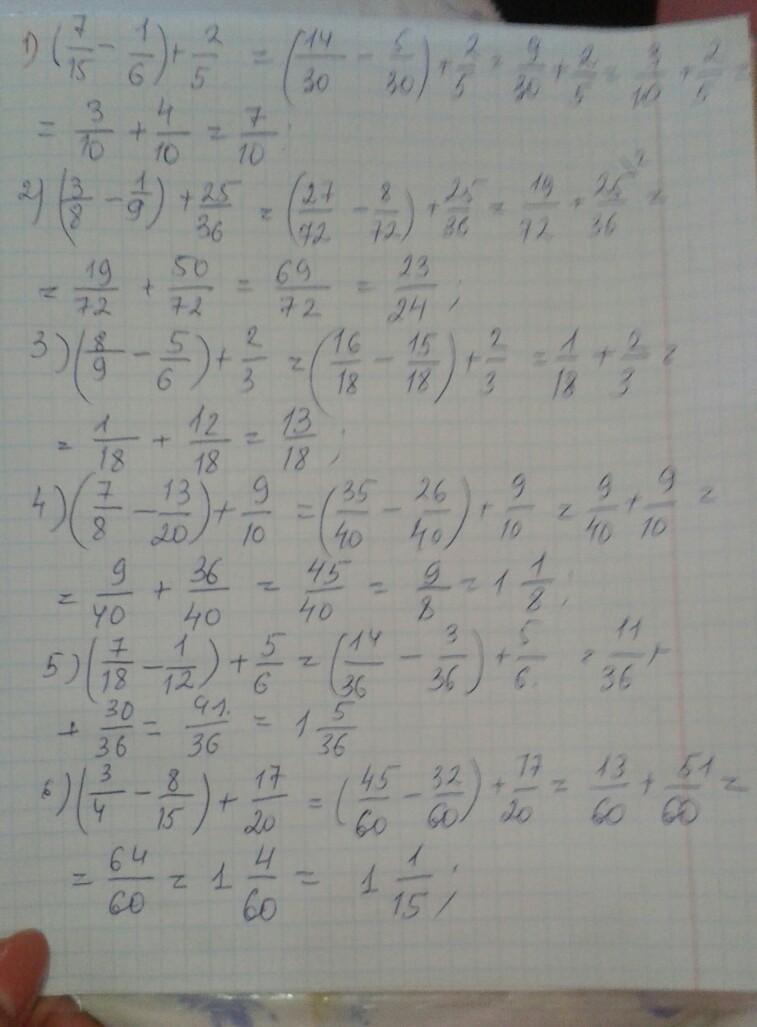 1) (7/15 - 1/6) + 2/5 = (14/30 - 5/30) + 2/5 = 9/30 + 2/5 = 3/10 + 2/5 =
= 3/10 + 4/10 = 7/10;
2) (3/8 - 1/9) + 25/36 = (27/72 - 8/72) + 25/36 = 19/72 + 25/36 =
= 19/72 + 50/72 = 69/72 = 23/24;
3) (8/9 - 5/6) + 2/3 = (16/18 - 15/18) + 2/3 = 1/18 + 2/3 =
= 1/18 + 12/18 = 13/18;
4) (7/8 - 13/20) + 9/10 = (35/40 - 26/40) + 9/10 = 9/40 + 9/10 =
= 9/40 + 36/40 = 45/40 = 9/8 = 1 1/8;
5) (7/18 - 1/12) + 5/6 = (14/36 - 3/36) + 5/6 = 11/36 +
+ 30/36 = 41/36 = 1 5/36
6) (3/4 - 8/15) + 17/20 = (45/60 - 32/60) + 17/20 = 13/60 + 51/60 =
= 64/60 = 1 4/60 = 1 1/15;